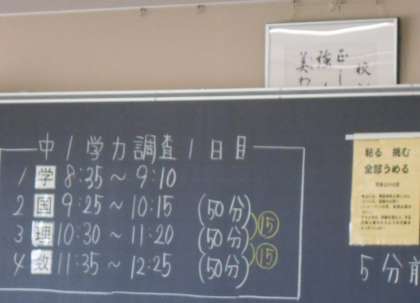 校
正し
強
美わ
中1学力調査1日目
1 学 8:35～9:10
2 国 9:25～10:15 (50分)
3 理 10:30～11:20 (50分) ⑮
4 数 11:35～12:25 (50分) ⑮
粘る 挑む
全部うめる
5分前